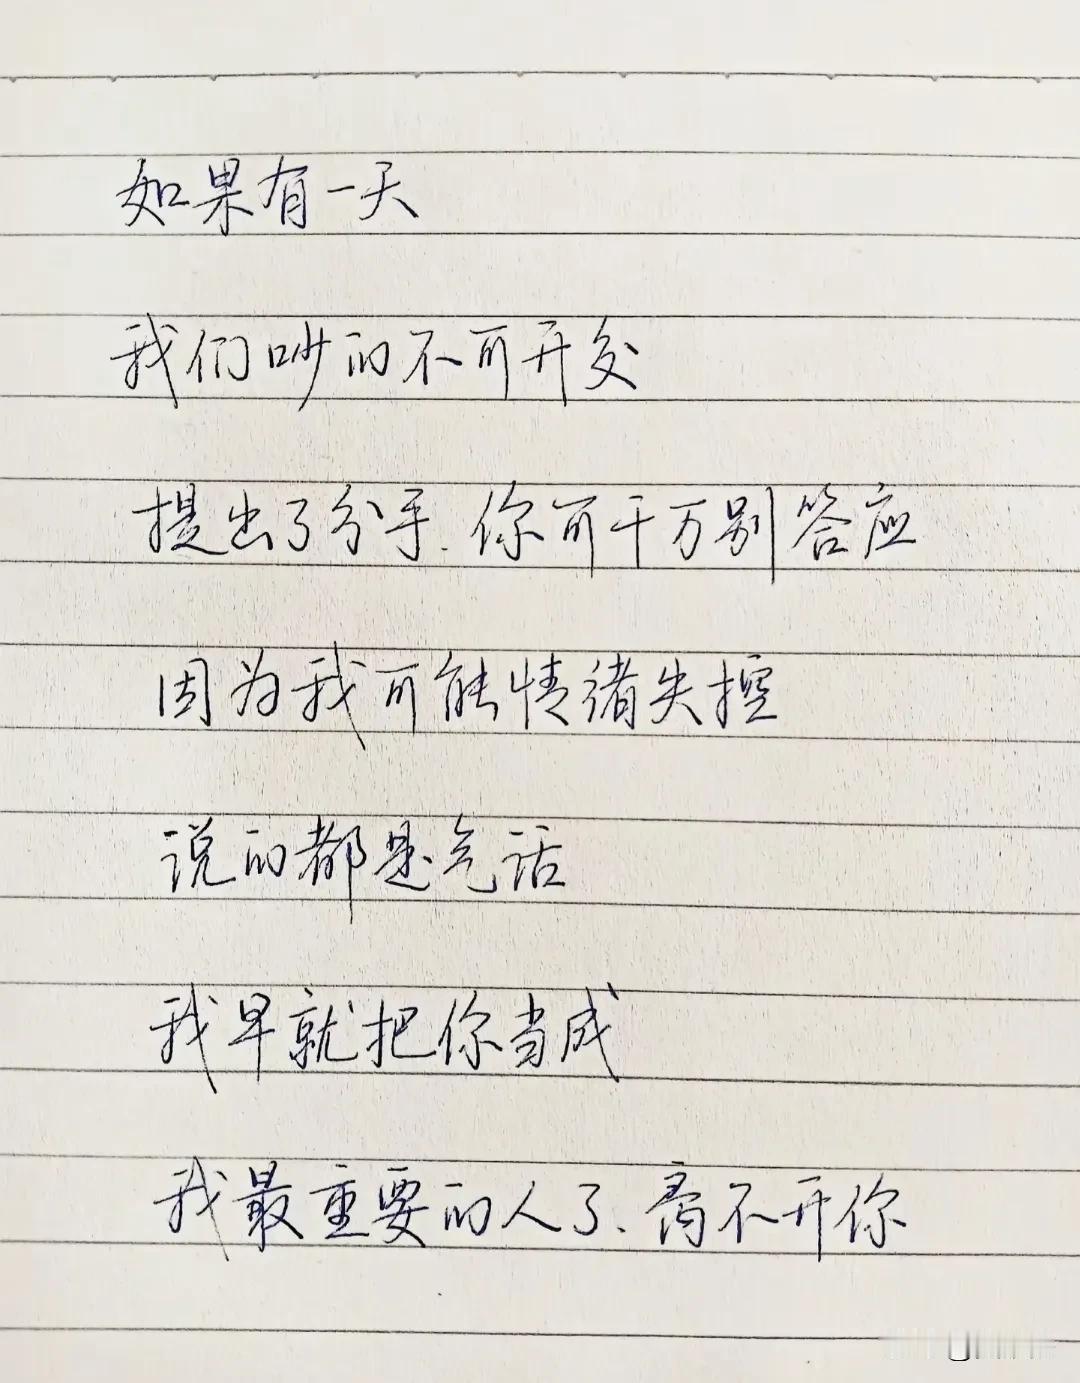 如果有一天
我们吵的不可开交
提出了分手.你可千万别答应
因为我可能情绪失控
说的都是气话
我早就把你当成
我最重要的人了、离不开你